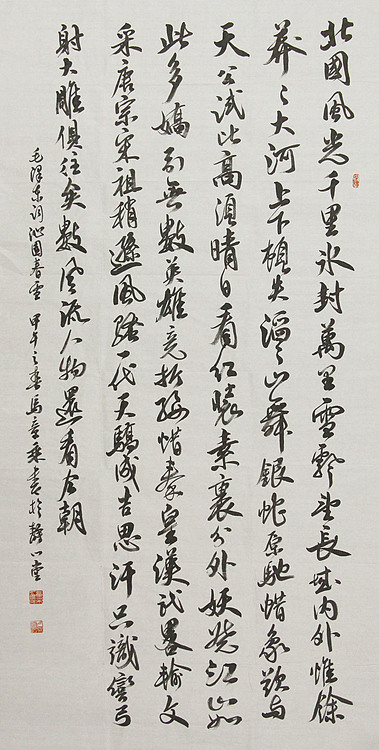 北國風光千里冰封萬里雪飄望長城内外惟餘
莽〻大河上下頓失滔〻山舞銀蛇原馳蜡象欲与
天公試比高須晴日看红裝素裹分外妖嬈江山如
此多嬌引無數英雄竞折腰惜秦皇漢武畧輸文
采唐宗宋祖稍遜風騷一代天驕成吉思汗只識彎弓
射大雕俱往矣數風流人物還看今朝
毛澤东詞沁園春雪 甲午之春馬書於堂